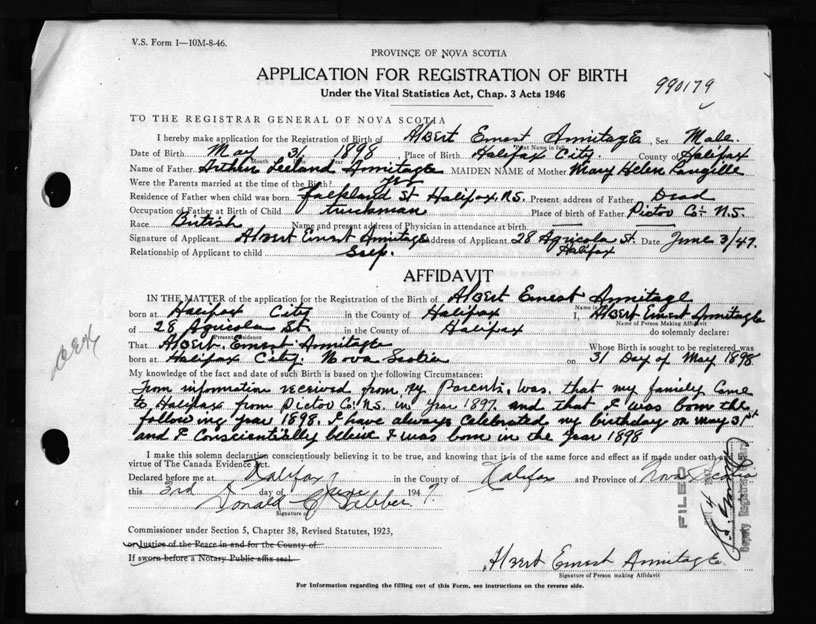 V.S. Form 1—10M-8-46.
PROVINCE OF NOVA SCOTIA
APPLICATION FOR REGISTRATION OF BIRTH
990179
Under the Vital Statistics Act, Chap. 3 Acts 1946
TO THE REGISTRAR GENERAL OF NOVA SCOTIA
I hereby make application for the Registration of Birth of Albert Ernest Armitage, Sex Male
Date of Birth May 31 1898 Place of Birth Halifax City County of Halifax
Name of Father Arthur Leeland Armitage MAIDEN NAME of Mother Mary Helen Langille
Were the Parents married at the time of the Birth? Yes
Residence of Father when child was born Falkland St Halifax, N.S. Present address of Father Dead
Occupation of Father at Birth of Child truckman Place of birth of Father Pictou Co. N.S.
Race British Name and present address of Physician in attendance at birth
Signature of Applicant Albert Ernest Armitage Address of Applicant 28 Agricola St. Date June 3/47.
Halifax
Relationship of Applicant to child Self.
AFFIDAVIT
IN THE MATTER of the application for the Registration of the Birth of Albert Ernest Armitage
born at Halifax City in the County of Halifax I, Albert Ernest Armitage
Name of Person Making Affidavit
of 28 Agricola St. in the County of Halifax do solemnly declare:
Present Residence
That Albert Ernest Armitage Whose Birth is sought to be registered was
born at Halifax City: Nova Scotia on 31 Day of May 1898
My knowledge of the fact and date of such Birth is based on the following Circumstances:
From information received from My Parents, was that my family Came
to Halifax from Pictou Co. N.S. in Year 1897. and that I was born the
following year 1898. I have always Celebrated my birthday on may 31st
and I Conscientiously believe I was born in the year 1898
I make this solemn declaration conscientiously believing it to be true, and knowing that it is of the same force and effect as if made under oath and by
virtue of The Canada Evidence Act.
Declared before me at Halifax in the County of Halifax and Province of Nova Scotia
this 3rd day of June 1947
Donald
Signature of
FILED
Commissioner under Section 5, Chapter 38, Revised Statutes, 1923,
or Justice of the Peace in and for the County of
If sworn before a Notary Public affix seal.
Albert Ernest Armitage
Signature of Person making Affidavit
For Information regarding the filling out of this Form, see instructions on the reverse side.